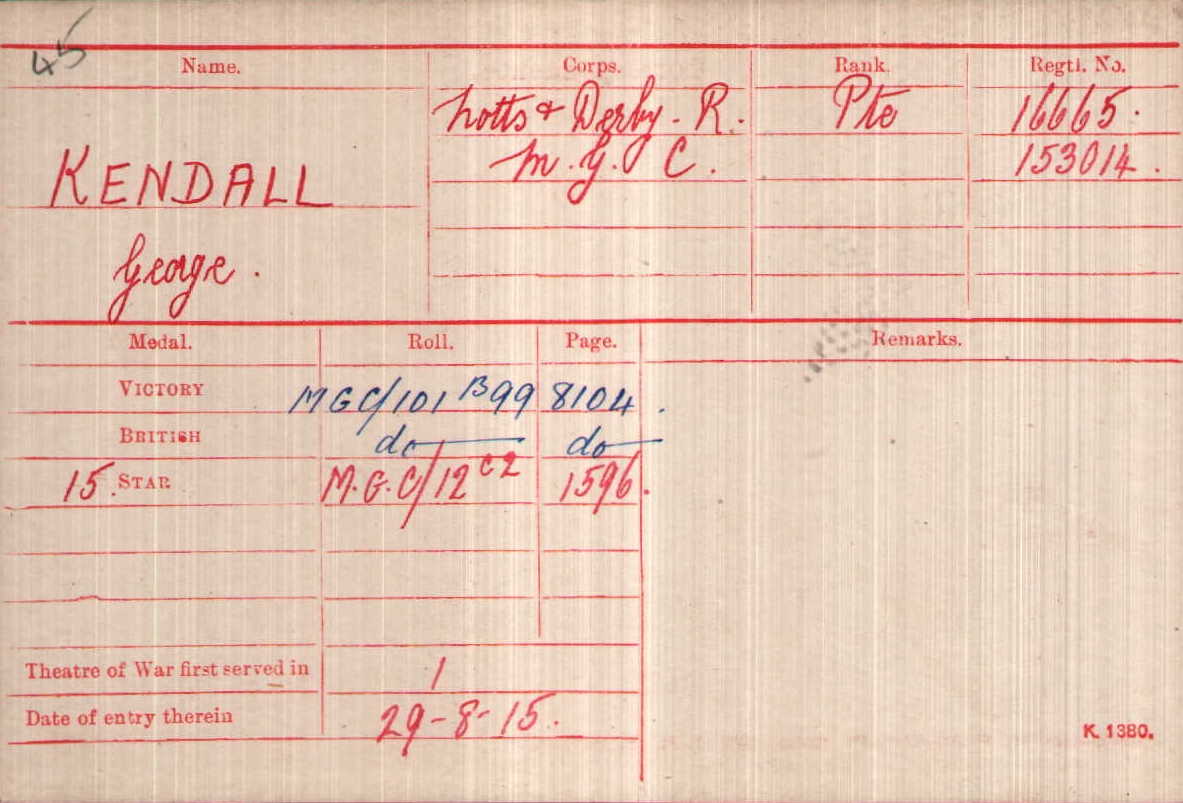 45
Name. Corps. Rank. Regtl. No.
Notts & Derby. R. Pte 16665.
M. G. C. 153014.
KENDALL
George.
Medal. Roll. Page. Remarks.
VICTORY MGC/101 B99 8104.
BRITISH do do
15. STAR M.G.C/12 C2 1596.
Theatre of War first served in 1
Date of entry therein 29-8-15.
K. 1380.